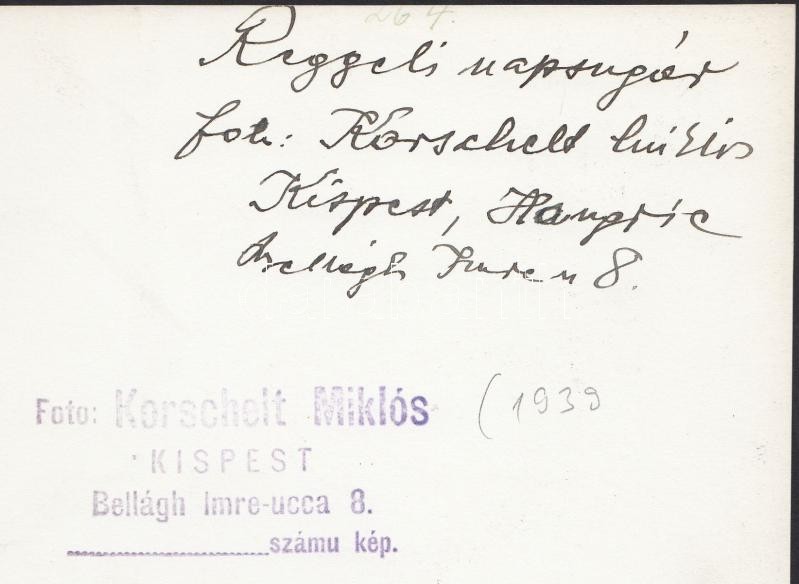 264.
Reggeli napsugár
foto: Korschelt Miklós
Kispest, Hongrie
Bellágh Imre u 8.
Foto: Korschelt Miklós
(1939
KISPEST
Bellágh Imre-ucca 8.
számu kép.